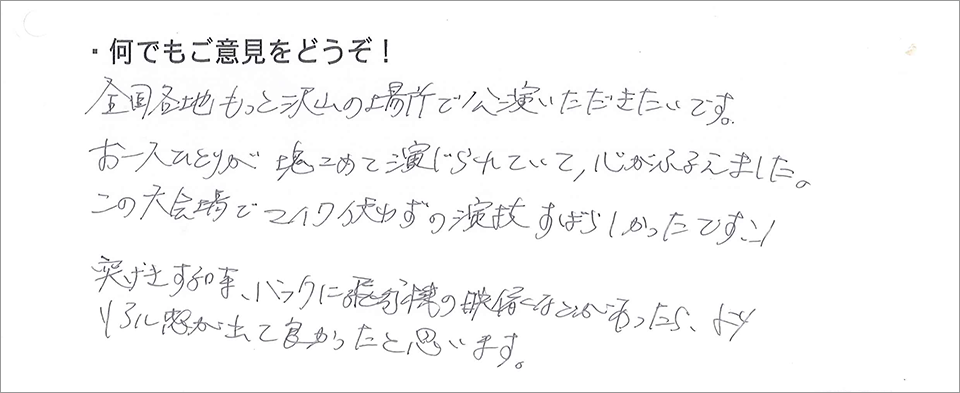 ・何でもご意見をどうぞ！
全国各地もっと沢山の場所で公演いただきたいです。
お一人ひとりが 魂こめて演じられていて、心がふるえました。
この大会場でマイク使わずの演技 すばらしかったです!!
突げきする時、バックに飛行機の映像などがあったら、より
リアル感が出て良かったと思います。